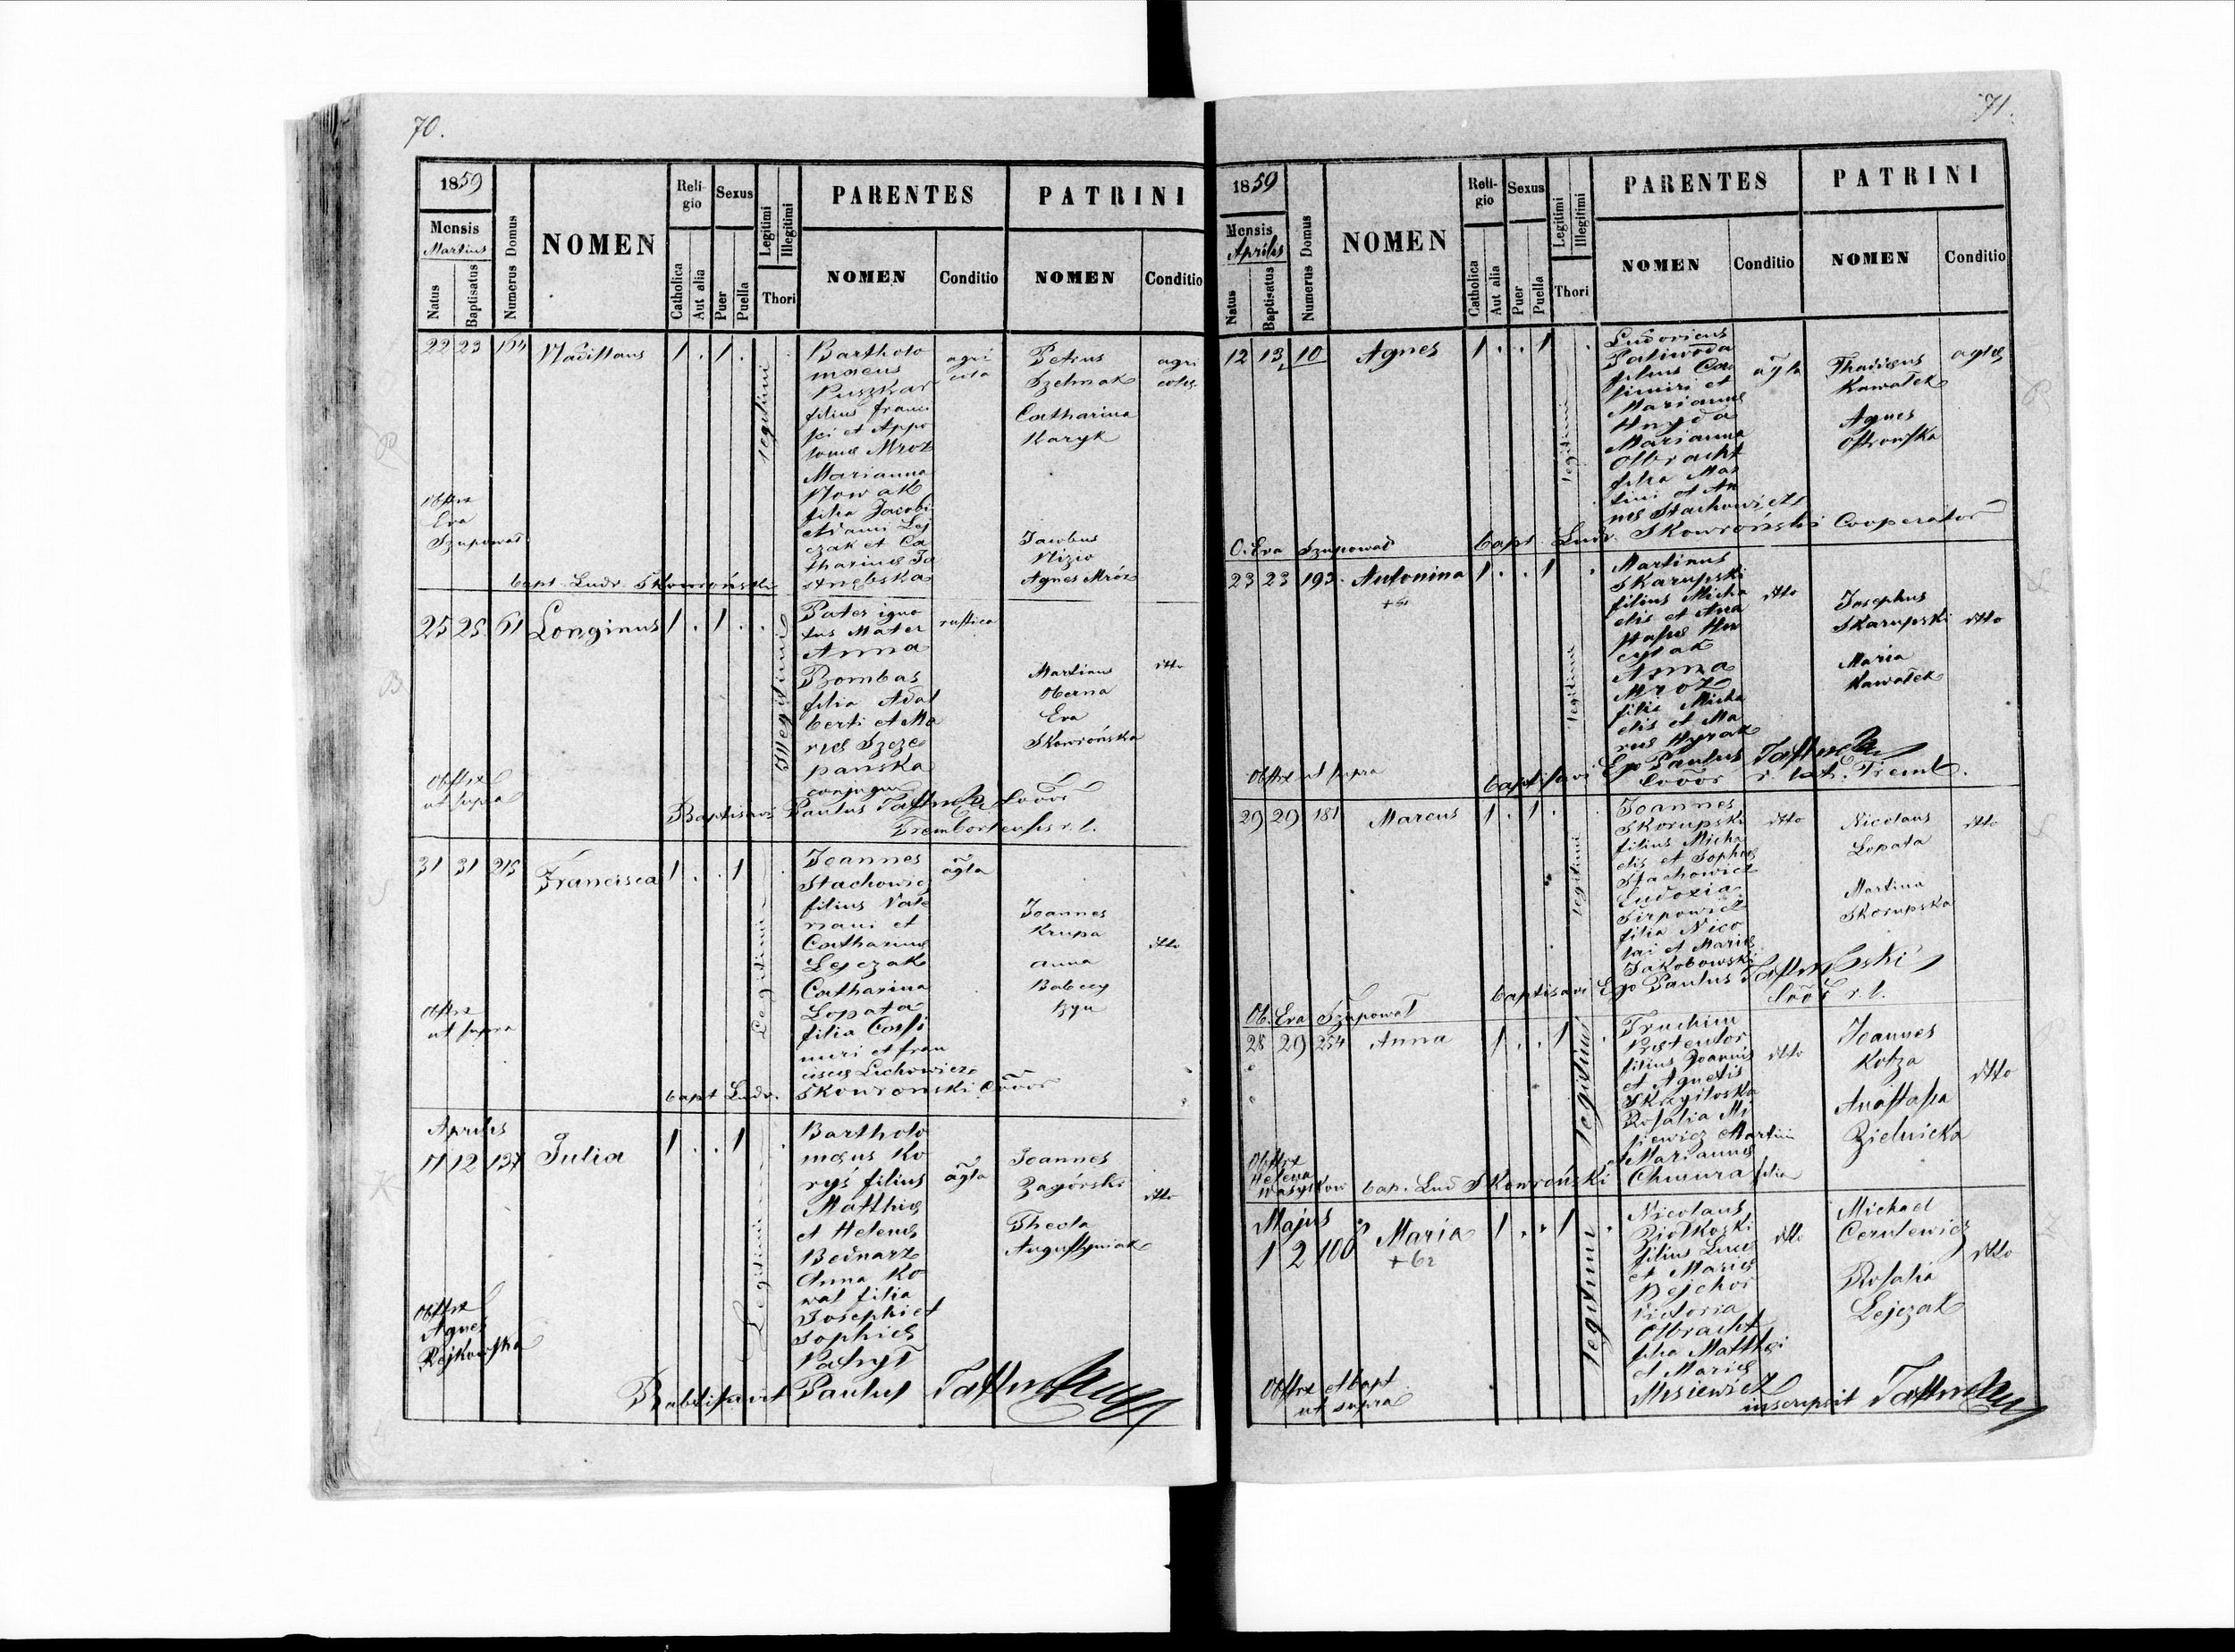 70.
1859
Mensis
Martius
Natus
Baptisatus
Numerus Domus
NOMEN
Religio
Catholica
Aut alia
Sexus
Puer
Puella
Legitimi
Illegitimi
Thori
PARENTES
NOMEN
Conditio
PATRINI
NOMEN
Conditio
22 23 164 Vladislaus 1 . 1 .
legitimi
Bartholo
maeus
Puszkar
filius franci
sci et Appo
loniae Mroz
Marianna
Nowak
filia Jacobi
Lej
czak et Ca
tharinae
agri
cola
Petrus
Szelmak
Catharina
Karyk
Jacobus
Nizio
Agnes Mróz
agri
colae
Obstrx
Eva
Szupowal
bapt. Ludv. Skowroński
25 25 61 Longinus 1 . 1 . .
Illegitimi
Pater igno
tus Mater
Anna
Bombas
filia Adal
berti et Ma
riae Szcze
panska
conjugum
rustica
Martinus
Oberna
Eva
Skowrońska
dtto
Obstrx
ut supra
Baptisavi Paulus
Trembovlensis r. l.
31 31 215 Francisca 1 . . 1
Legitimi
Joannes
Stachowicz
filius Vale
riani et
Catharinae
Lejczak
Catharina
Lopata
filia Casi
miri et fran
ciscae Lichowicz
agla
Joannes
Krupa
Anna
dtto
Obstrx
ut supra
bapt Ludv. Skowronski Coóór
Aprilis
11 12 137 Julia 1 . . 1
Legitimi
Bartholo
maeus Ko
ryś filius
Matthiae
et Helenae
Bednarz
Anna Ko
wal filia
Josephi et
Sophiae
agla
Joannes
Zagórski
Thecla
Augustyniak
dtto
Obstrx
Agnes
Rejkowska
Babtisavit Paulus
71.
1859
Mensis
Aprilis
Natus
Baptisatus
Numerus Domus
NOMEN
Religio
Catholica
Aut alia
Sexus
Puer
Puella
Legitimi
Illegitimi
Thori
PARENTES
NOMEN
Conditio
PATRINI
NOMEN
Conditio
12 13 10 Agnes 1 . . 1
legitimi
Ludovicus
Paliwoda
filius Ca
simiri et
Mariannae
Hnyda
Marianna
Olbracht
filia Mar
tini et Ag
nes Stachowicz
agla
Thadaeus
Kawałek
Agnes
Ostrowska
aglae
O. Eva Szupowal bapt Ludv. Skowroński Cooperator
23 23 193 Antonina 1 . . 1
+61
legitimi
Martinus
Skarupski
filius Micha
elis et Ana
stasiae
Anna
Mroz
filia Micha
elis et Ma
riae
dtto
Josephus
Skarupski
Maria
Kawałek
dtto
Obstrx ut supra baptisavi Ego Paulus
Coóór r. lat. Tremb.
29 29 181 Marcus 1 . 1 .
legitimi
Joannes
Skorupski
filius Micha
elis et Sophiae
Stachowicz
Eudoxia
filia Nico
lai et Mariae
Jakobowski
dtto
Nicolaus
Lopata
Martina
Skorupska
dtto
Ob. Eva Szupowal
baptisavi Ego Paulus
Coóór r. l.
28 29 254 Anna 1 . . 1
legitimi
filius Joannis
et Agnetis
Rosalia Mi
siewicz Martini
Mariannae
Chmura filia
dtto
Joannes
Kotza
Anastasia
Zielnicka
dtto
Obstrx
Helena
Wasylkow bap. Lud Skowroński
Majus
1 2 100 Maria 1 . . 1
+62
legitimi
Nicolaus
Ziolkoski
filius Lucae
et Mariae
Bejchor
Victoria
Olbracht
filia Matthaei
et Mariae
Misiewicz
dtto
Michael
Cerulewicz
Rosalia
Lejczak
dtto
Obstrx et bapt
ut supra
inscripsit